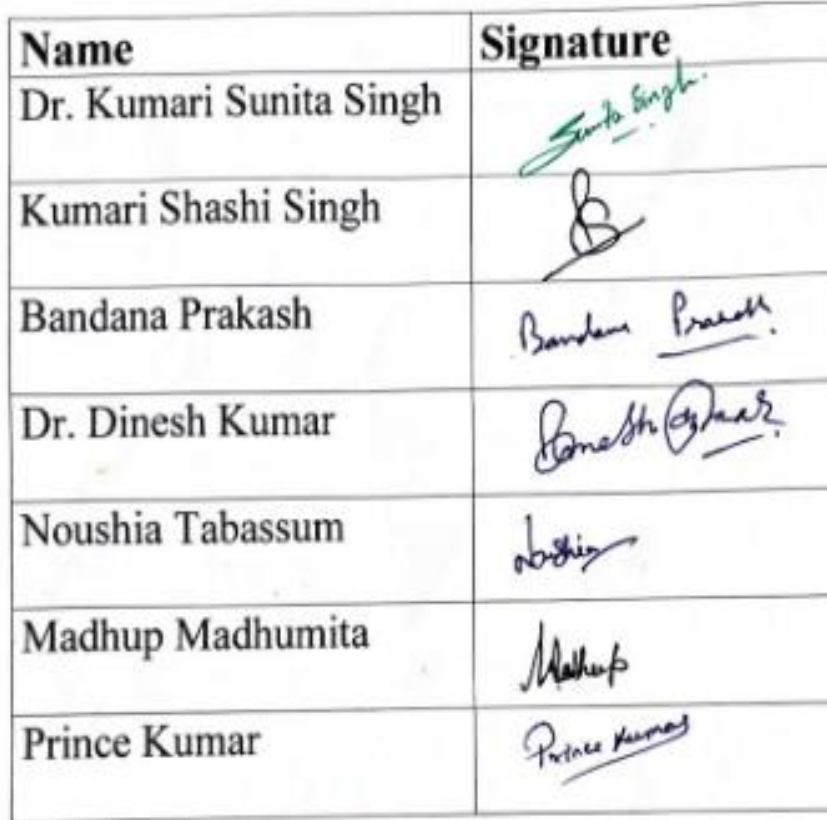 Name Signature
Dr. Kumari Sunita Singh Sunita Singh.
Kumari Shashi Singh
Bandana Prakash Bandana Prakash
Dr. Dinesh Kumar Dinesh Kumar
Noushia Tabassum Noushia
Madhup Madhumita Madhup
Prince Kumar Prince Kumar